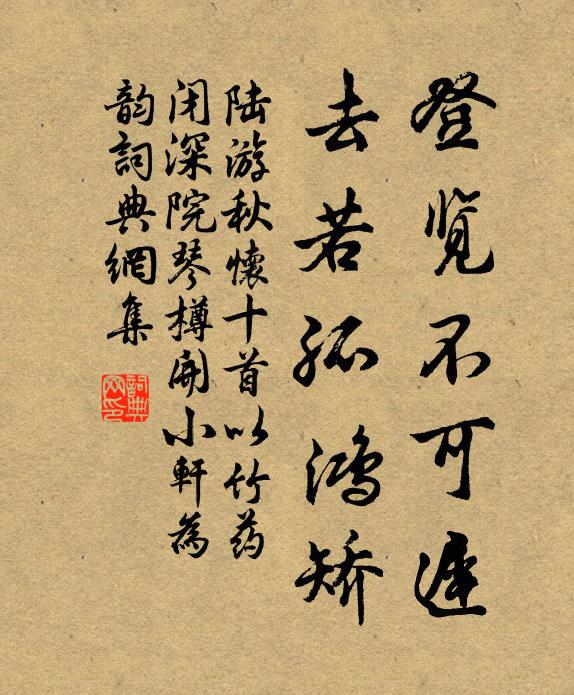 登览不可遲
去若孤鸿矫
陆游秋懷十首以竹药
闭深院琴樽開小軒為
韵詞典網集
詞典网印